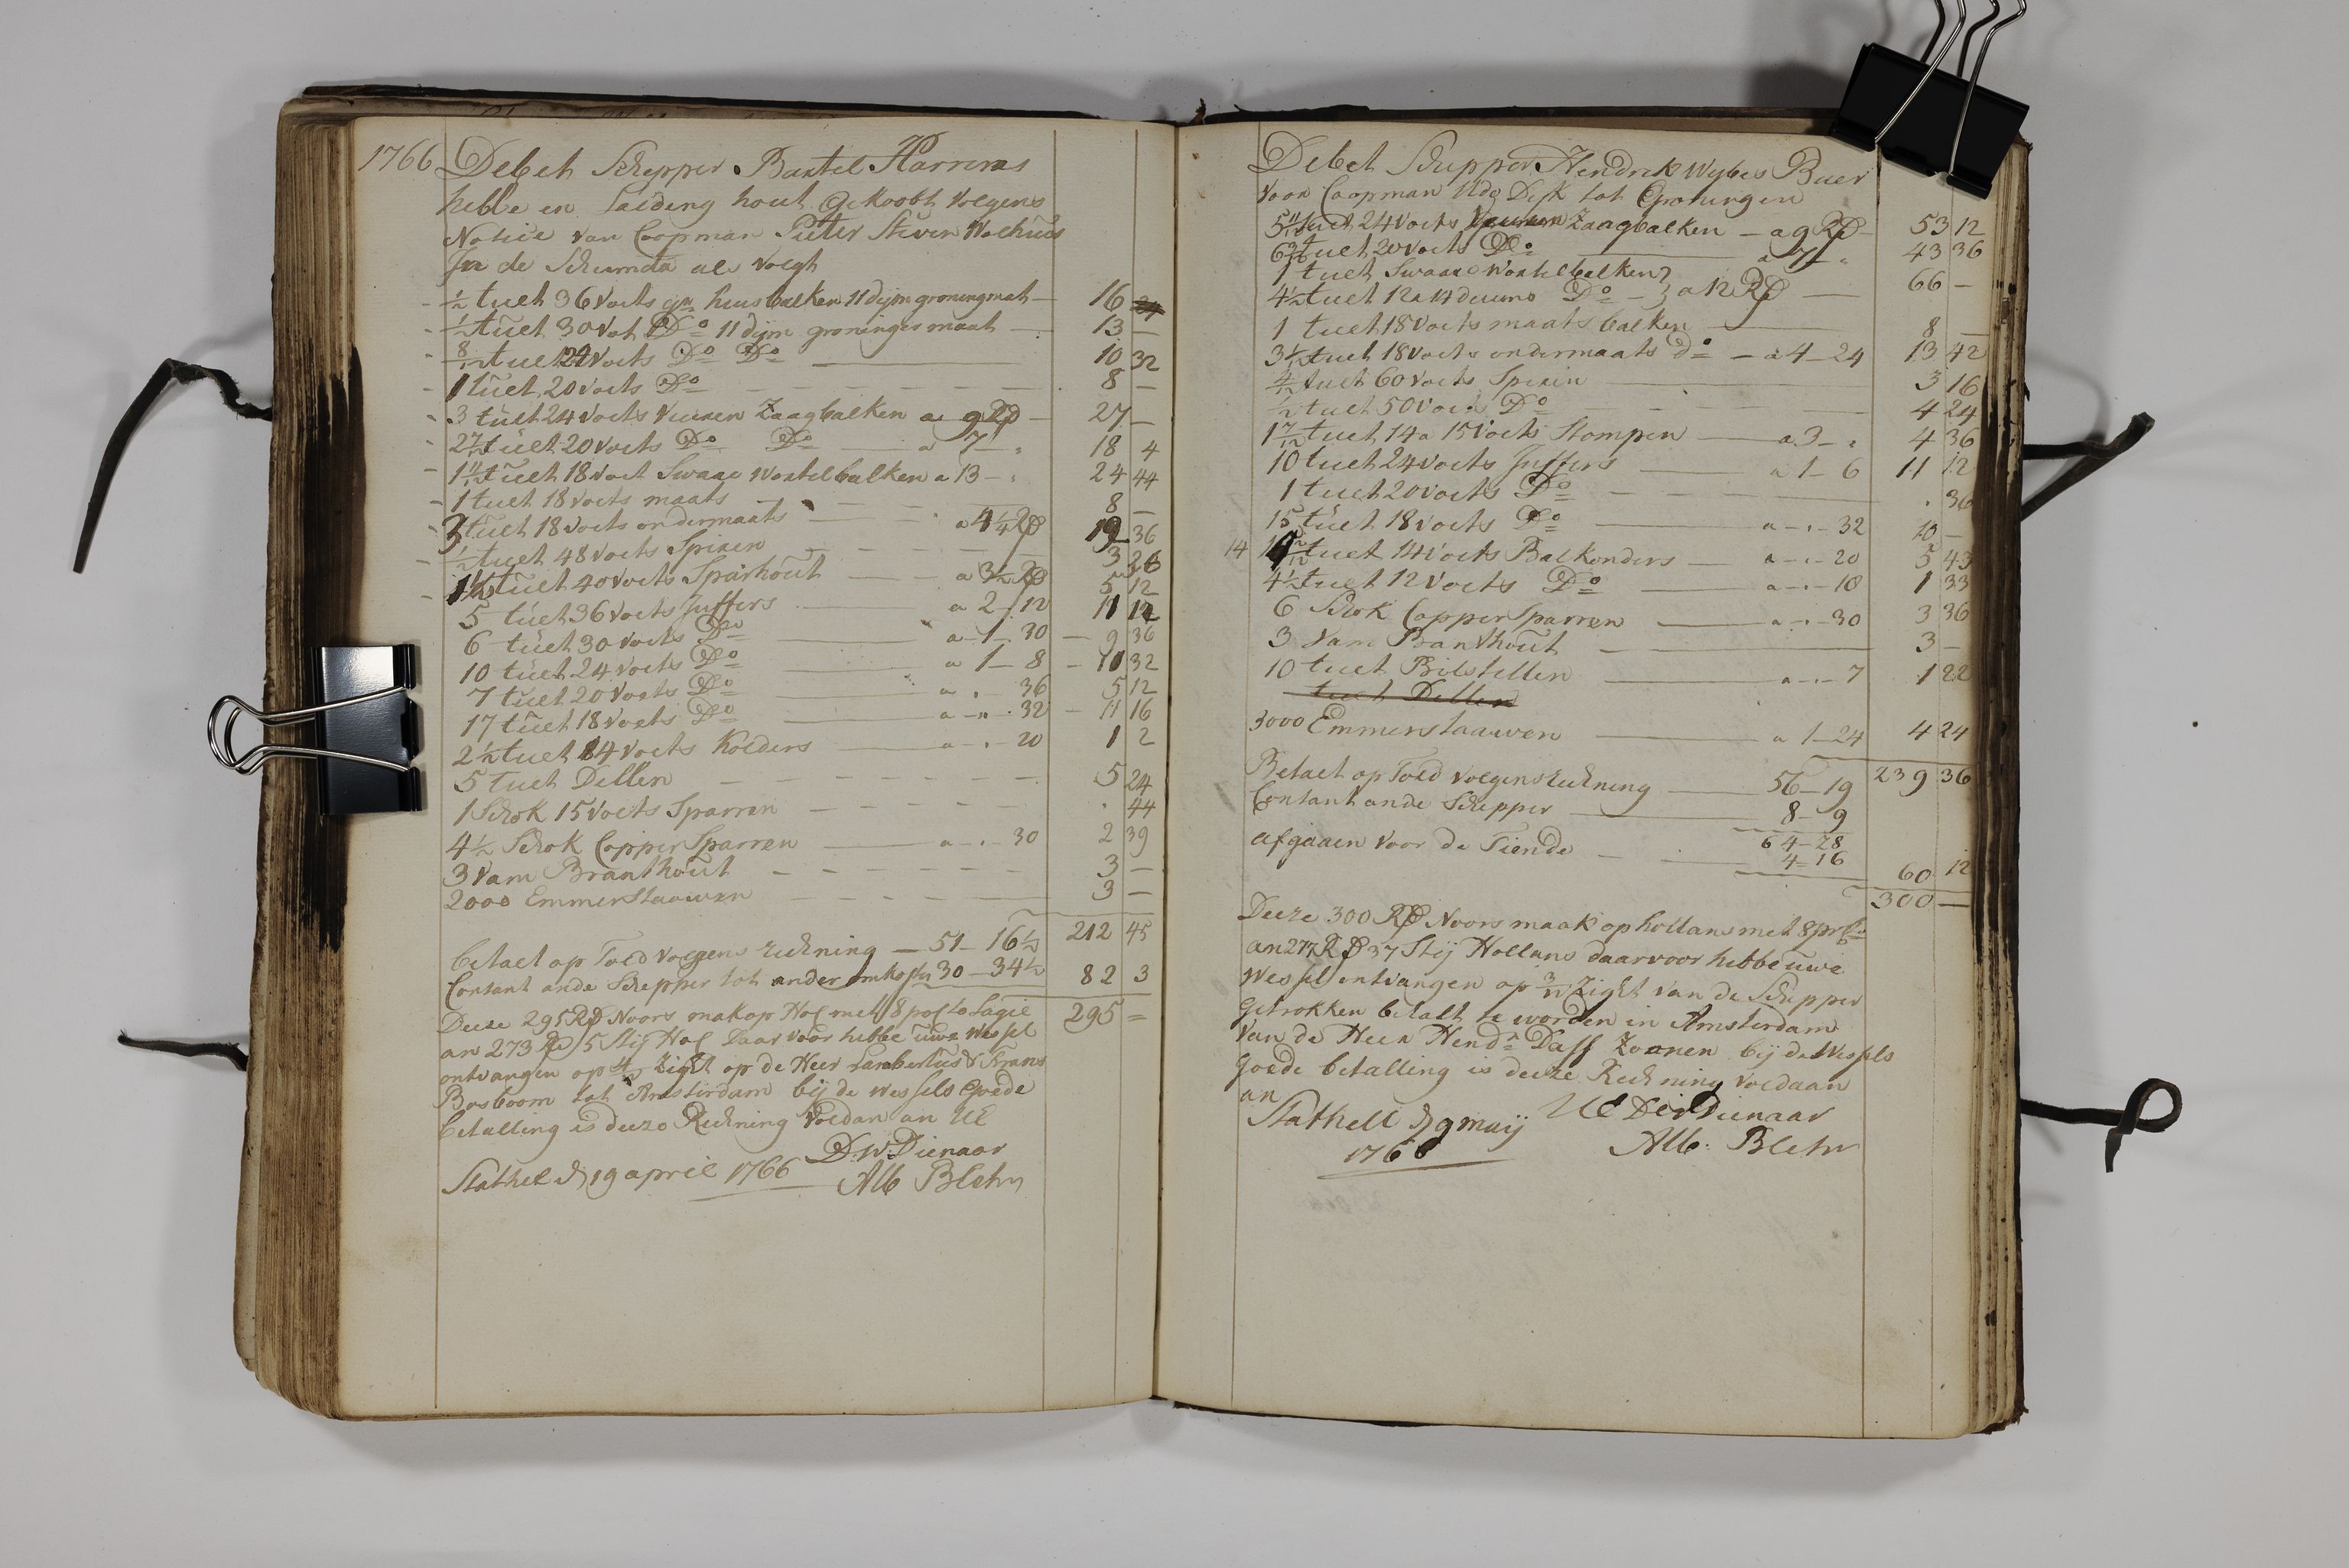 1766 Debet Schipper Bartel Harrens
hebbe en Laeding hout Gekoobt Volgens
Notice van Coopman Pieter Steven Wolhuis
In de Schemda als volgt
½ tuelt 36 Voets gn huisbalken 11 dijm groningmat — 16
½ tuelt 30 Vot Do 11 dijm groninges maat — 13 —
8/12 tuelt 24 Voets Do Do — 10 32
1 tuelt 20 voets Do — 8 —
3 tuelt 24 voets Vieuren Zaagbalken a 9 Rd — 27 —
2 7/12 tuelt 20 voets Do Do — a 7 — 18 4
1 11/12 tuelt 18 voet Swaae Wortelbalken a 13 — 24 44
1 tuelt 18 voets maats — 8 —
3 tuelt 18 voets ondermaats — a 4¼ Rd 12 36
½ tuelt 48 voets Spieren — 3 36
1½ tuelt 40 voets Sparhout — a 3½ Rd 5 12
5 tuelt 36 voets Juffers — a 2 – 12 11 12
6 tuelt 30 voets Do — a 1 – 30 — 9 36
10 tuelt 24 voets Do — a 1 – 8 — 10 32
7 tuelt 20 Voets Do — a . – 36 5 12
17 tuelt 18 voets Do — a – " – 32 — 11 16
2½ tuelt 14 voets Kolders — a – . – 20 1 2
5 tuelt Dellen — 5 24
1 Schok 15 Voets Sparren — . 44
4½ Schok Copper Sparren — a – . – 30 2 39
3 Vam Branthout — 3 —
2000 Emmerstaauwen — 3 —
betaelt op Toed Volgens reckning — 51 – 16½ 212 45
Contant ande Schepper tot ander omkosten 30 – 34½ 82 3
Deeze 295 Rd Noors mak op Hol met 8 pocto Lagie 295 =
an 273 Rd 5 Stij Hol Daar voor hebbe uwe Wessel
ontvangen op 4/m Zigt op de Heer Lambertus & Frans
Bosboom tot Amsterdam bij de wessels Goede
betalling is deeze Reckning Voldan an UE
D.W. Dienaar
Stathel d 19 april 1766 Alb Blehr
Debet Schipper Hendrik Wybes Buer
Voor Coopman Udg Dijk tot Groningen
5 11/12 tuelt 24 Voets Veuren Zaagbalken — a 9 Rd — 53 12
6 3/12 tuelt 20 voets Do — a 7 — " 43 36
1 tuelt Swaare Wortelbalken
4½ tuelt 12 a 14 deums Do — a 12 Rd — 66 —
1 tuelt 18 voets maats balken — 8 —
3 1/12 tuelt 18 voets ondermaats do — a 4 – 24 13 42
4/12 tuelt 60 voets Spieren — 3 16
½ tuelt 50 voets Do — 4 24
1 7/12 tuelt 14 a 15 Voets Stompen — a 3 – . 4 36
10 tuelt 24 voets Juffers — a 1 – 6 11 12
1 tuelt 20 voets Do — . 36
15 tuelt 18 voets Do — a – . – 32 10 —
14 tuelt 14 Voets Balkonders — a – . – 20 5 43
4½ tuelt 12 Voets Do — a – . – 18 1 33
6 Schok Copper Sparren — a – . – 30 3 36
3 Vam Branthout — 3 —
10 tuelt Bilstellen — a – . – 7 1 22
tuelt Dellen
3000 Emmerstaauwen — a 1 – 24 4 24
Betaelt op Toed volgens reckning — 56 – 19 239 36
Contant ande Schepper — 8 – 9
64 – 28
afgaaen voor de Tiende — 4 – 16 60 12
300 —
Deeze 300 Rd Noors maak op hollans met 8 pr Co
an 277 Rd 37 Stij Hollans daarvoor hebbe uwe
Wessel ontvangen op 3/m Zigt van de Schipper
getrokken betalt te worden in Amsterdam
Van de Heer Hendr Daff Zoonen bij de Wessels
goede betalling is deeze Reckning voldaan
an
Stathell d 9 maij UE Der Dienaar
1766 Alb: Blehr